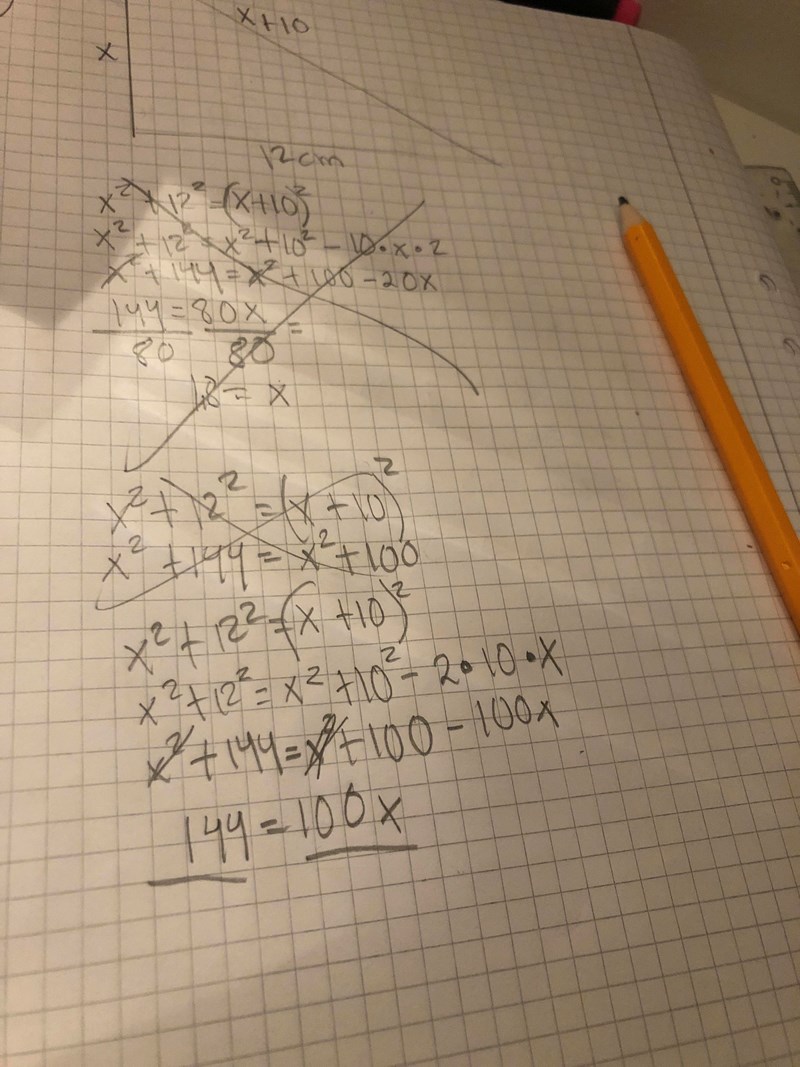 x+10
x
12cm
x² + 12² = (x+10)²
x² + 12² = x² + 10² - 10 • x • 2
x² + 144 = x² + 100 - 20x
144 = 80x
80 80 =
1,8 = x
x² + 12² = (x + 10)²
x² + 144 = x² + 100
x² + 12² = (x + 10)²
x² + 12² = x² + 10² - 2 • 10 • x
x² + 144 = x² + 100 - 100x
144 = 100x